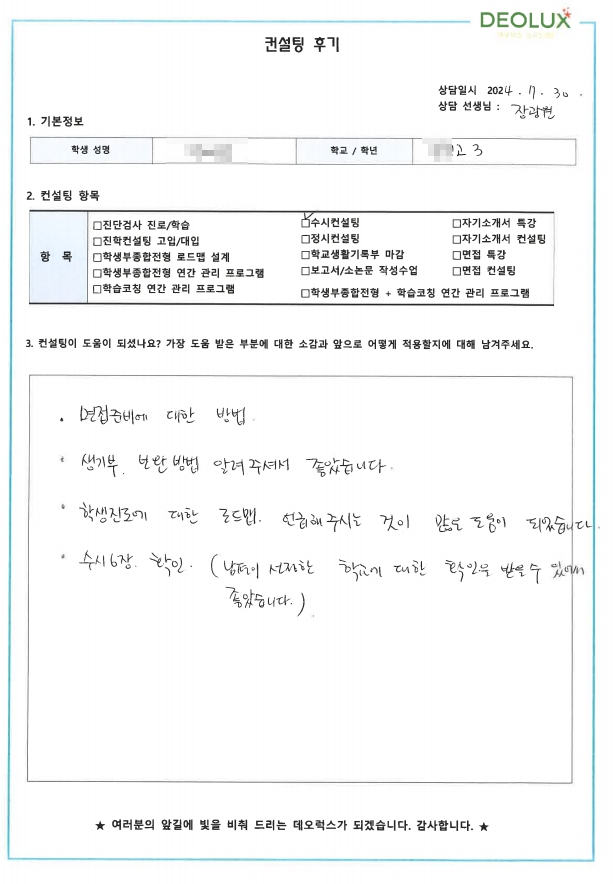 DEOLUX
컨설팅 후기
상담일시 2024. 7. 30.
상담 선생님 : 장광현
1. 기본정보
학생 성명 학교 / 학년 고 3
2. 컨설팅 항목
항 목
□진단검사 진로/학습 □수시컨설팅 □자기소개서 특강
□진학컨설팅 고입/대입 □정시컨설팅 □자기소개서 컨설팅
□학생부종합전형 로드맵 설계 □학교생활기록부 마감 □면접 특강
□학생부종합전형 연간 관리 프로그램 □보고서/소논문 작성수업 □면접 컨설팅
□학습코칭 연간 관리 프로그램 □학생부종합전형 + 학습코칭 연간 관리 프로그램
3. 컨설팅이 도움이 되셨나요? 가장 도움 받은 부분에 대한 소감과 앞으로 어떻게 적용할지에 대해 남겨주세요.
• 면접준비에 대한 방법.
• 생기부 보완방법 알려주셔서 좋았습니다.
• 학생진로에 대한 로드맵. 언급해주시는 것이 많은 도움이 되었습니다.
• 수시6장. 확인. (남편이 선정한 학교에 대한 확인을 받을수 있어서
좋았습니다.)
★ 여러분의 앞길에 빛을 비춰 드리는 데오럭스가 되겠습니다. 감사합니다. ★